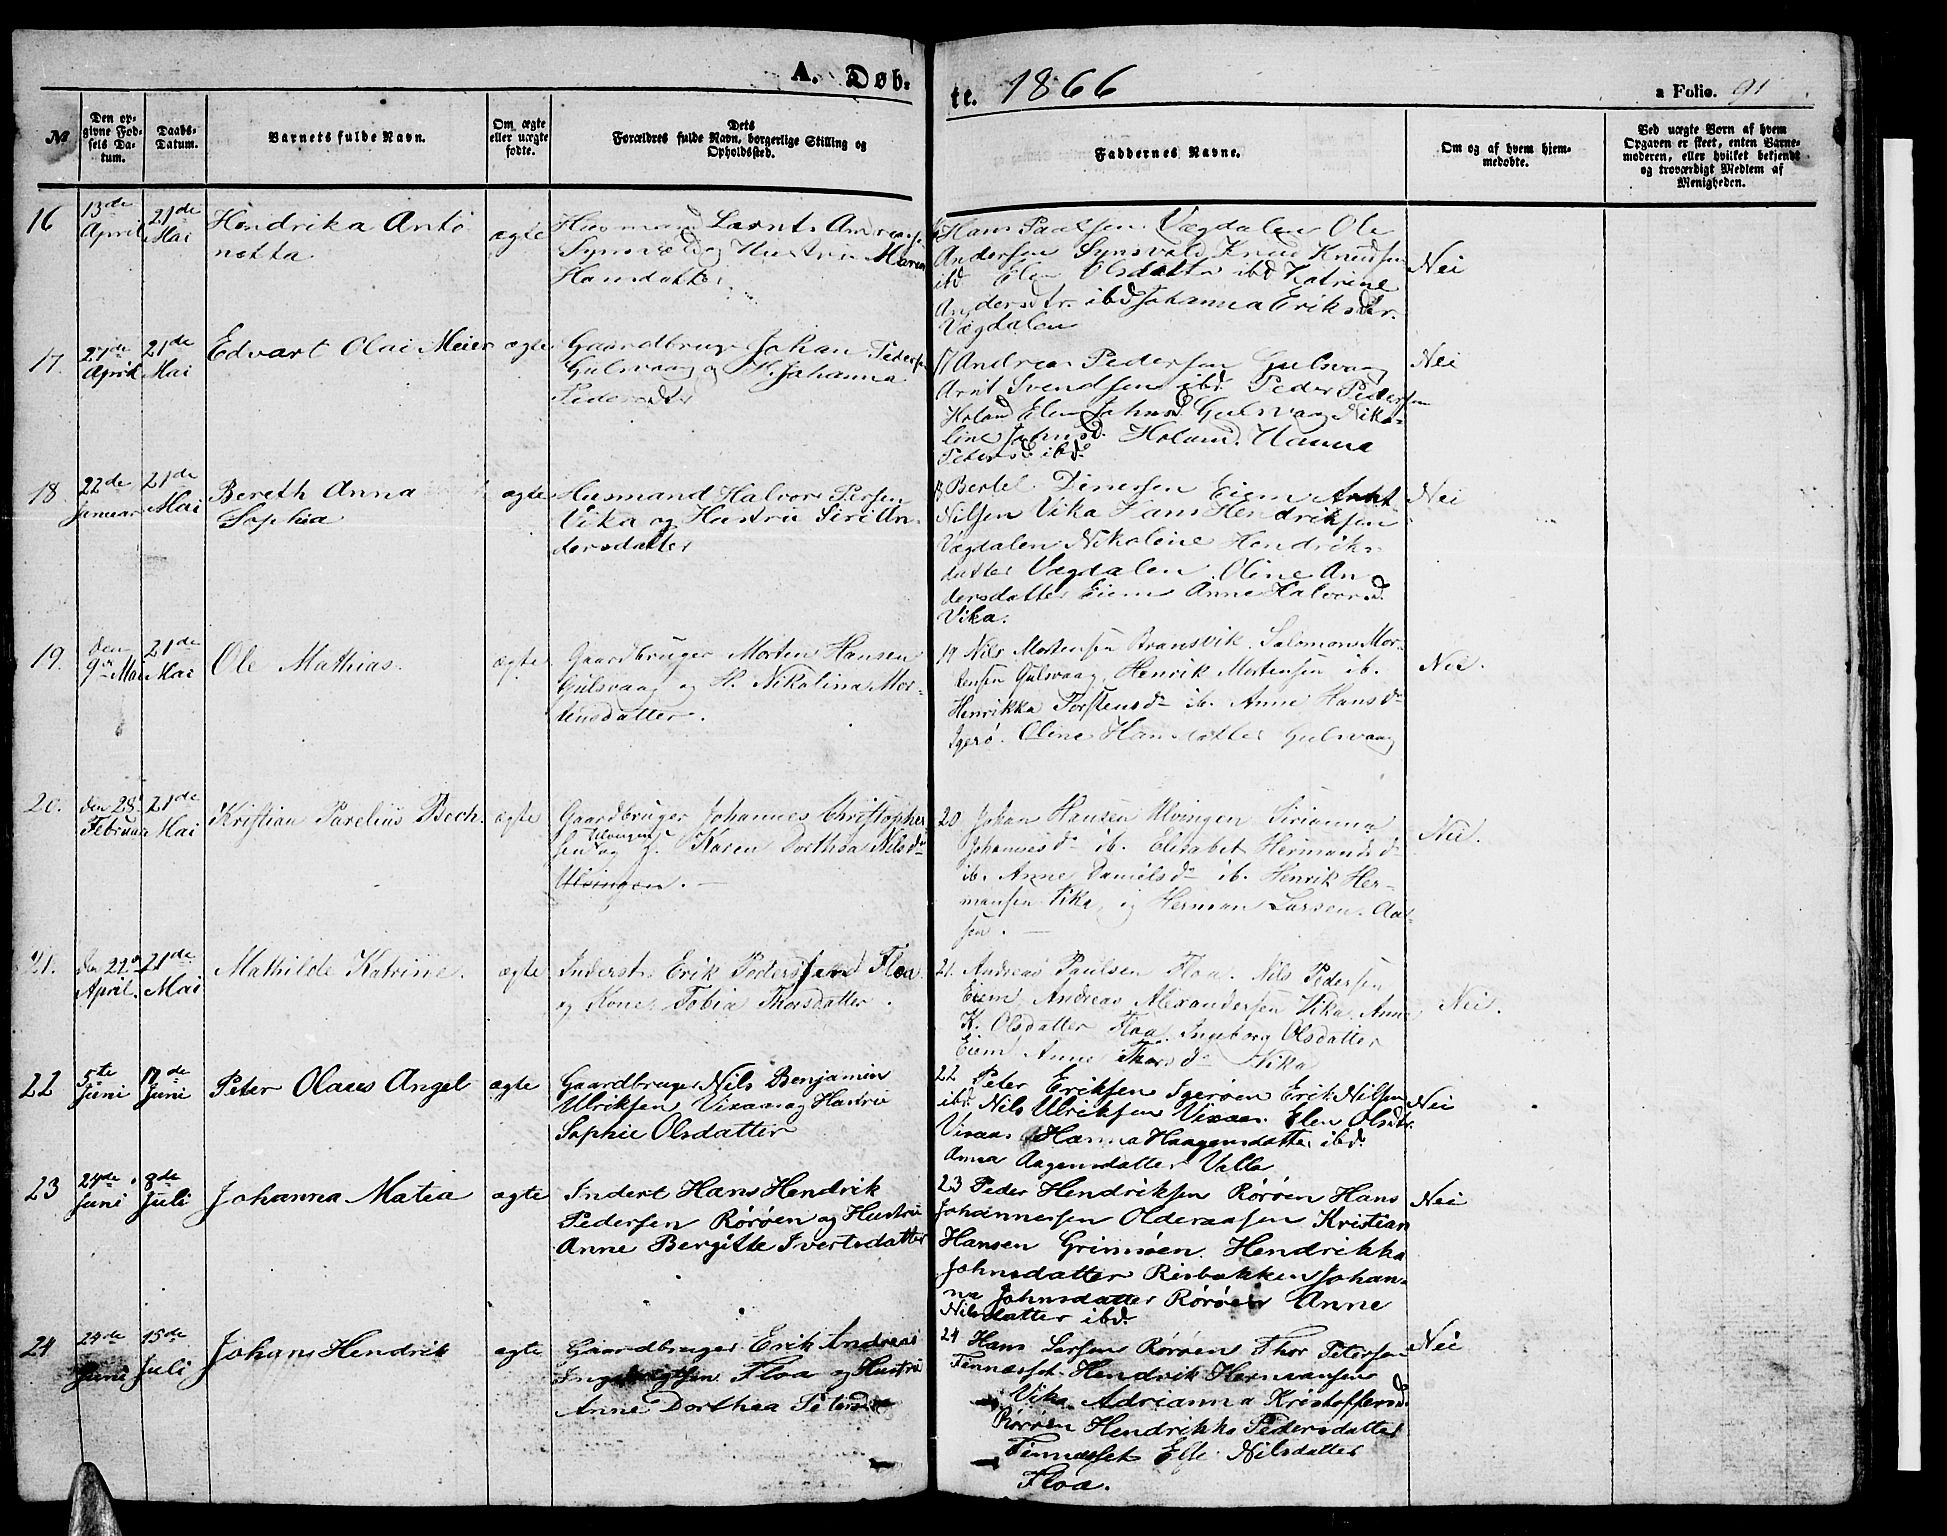 A. Døb-
te. 1866
a Folio. 91
№
Den op-
givne Fød-
sels Da-
tum.
Daabs-
Datum.
Barnets fulde Navn.
Om ægte
eller uægte
fødte.
Dets
Forældres fulde Navn, borgerlige Stilling og
Opholdssted.
Faddernes Navne.
Om og af hvem hjem-
medøbte.
Ved uægte Børn af hvem
Opgaven er skeet, enten Barne-
moderen, eller hvilket bekjendt
og troværdigt Medlem af
Menigheden.
16
13de
April
21de
Mai
Hendrika Anto
netta
ægte
Husmand Larnts Andreas
Synsvæld og Hustru Maria
Hansdatter
Hans Paalsen Vægdalen Ole
Andersen Synsvold Knud Knudsen
ibd Elen Olsdatter ibd Katrine
Andersdtr. ibd Johanna Eriksdtr.
Vægdalen
Nei
17.
27de
April
21de
Mai
Edvart Olai Meier
ægte
Gaardbruger Johan Pedersen
Gulsvaag og H. Johanna
Pedersdtr
17 Andreas Pedersen Gulsvaag
Arnt Svendsen ibd. Peder Pedersen
Holand Elen Johnsd. Gulsvaag Niko-
line Johnsd. Holand. Hanna
Petersd ibd.
Nei
18.
22de
Januar
21de
Mai
Bereth Anna
Sophia
ægte
Husmand Halvor Persen
Vika og Hustru Siri An-
dersdatter
18 Bertel Dinesen Eiem Arnt
Nilsen Vika Hans Hendriksen
Vægdalen Nikoleine Hendriks-
datter Vægdalen Oline An
dersdatter Eiem Anne Halvorsd.
Vika.
Nei
19.
den
9de Mai
21de
Mai
Ole Mathias.
ægte
Gaardbruger Morten Hansen
Gulsvaag og H. Nikolina Mor-
tensdatter.
19 Nils Mortensen Bransvik. Salomon Mor-
tensen Gulsvaag, Henrik Mortensen ib.
Henrikka Torstensdr ib. Anne Hansdr
Igerø. Oline Hansdatter Gulsvaag
Nei.
20.
den 28
Februar
21de
Mai
Kristian Parelius Bech.
ægte
Gaardbruger Johannes Christopher
sen Ulvingen og H. Karen Dorthea Nilsdr
Ulvingen. —
20 Johan Hansen Ulvingen Sirianna
Johannesdr ib. Elisabet Hermansdr
ib. Anne Danielsdr ib. Henrik Her-
mansen Vika, og Herman Larsen. Aal-
sen. —
Nei.
21.
den 22de
April.
21de
Mai
Mathilde Katrine.
ægte
Inderst Erik Pedersen Floa
og Kone Tobia Thorsdatter.
21. Andreas Paulsen Floa. Nils Pedersen
Eiem, Andreas Alexandersen Vika, Anne
K. Olsdatter Floa, Ingeborg Olsdatter
Eiem Anne Thorsdr Vika
Nei.
22
5te
Juni
17de
Juni
Peter Olaus Angel
ægte
Gaardbruger Nils Benjamin
Ulriksen Visaas og Hustru
Sophie Olsdatter
22 Peter Eriksen Igerøen Erik Nilsen
ibd. Nils Ulriksen Visaas Elen Olsdtr.
Visaas Hanna Haagensdatter ibd.
Anna Aagensdatter Valla
Nei
23
24de
Juni
8de
Juli
Johanna Matea
ægte
Inderst Hans Hendrik
Pedersen Rørøen og Hustru
Anne Bergitte Ivertsdatter
23 Peder Hendriksen Rørøen Hans
Johannessen Olderaasen Kristian
Hansen Grimsøen. Hendrikka
Johnsdatter Risbakken Johan-
na Johnsdatter Rørøen Anne
Nilsdatter ibd.
Nei
24
24de
Juni
15de
Juli
Johan Hendrik
ægte
Gaardbruger Erik Andreas
Ingebrigtsen Floa og Hustru
Anne Dorthea Petersdtr
24 Hans Larsen Rørøen Thor Petersen
Finnesset Hendrik Hermansen
Vika Adrianna Kristoffersd.
Rørøen Hendrikka Pedersdatter
Finnesset Else Nilsdatter
Floa.
Nei